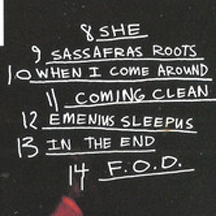 8 SHE
9 SASSAFRAS ROOTS
10 WHEN I COME AROUND
11 COMING CLEAN
12 EMENIUS SLEEPUS
13 IN THE END
14 F.O.D.